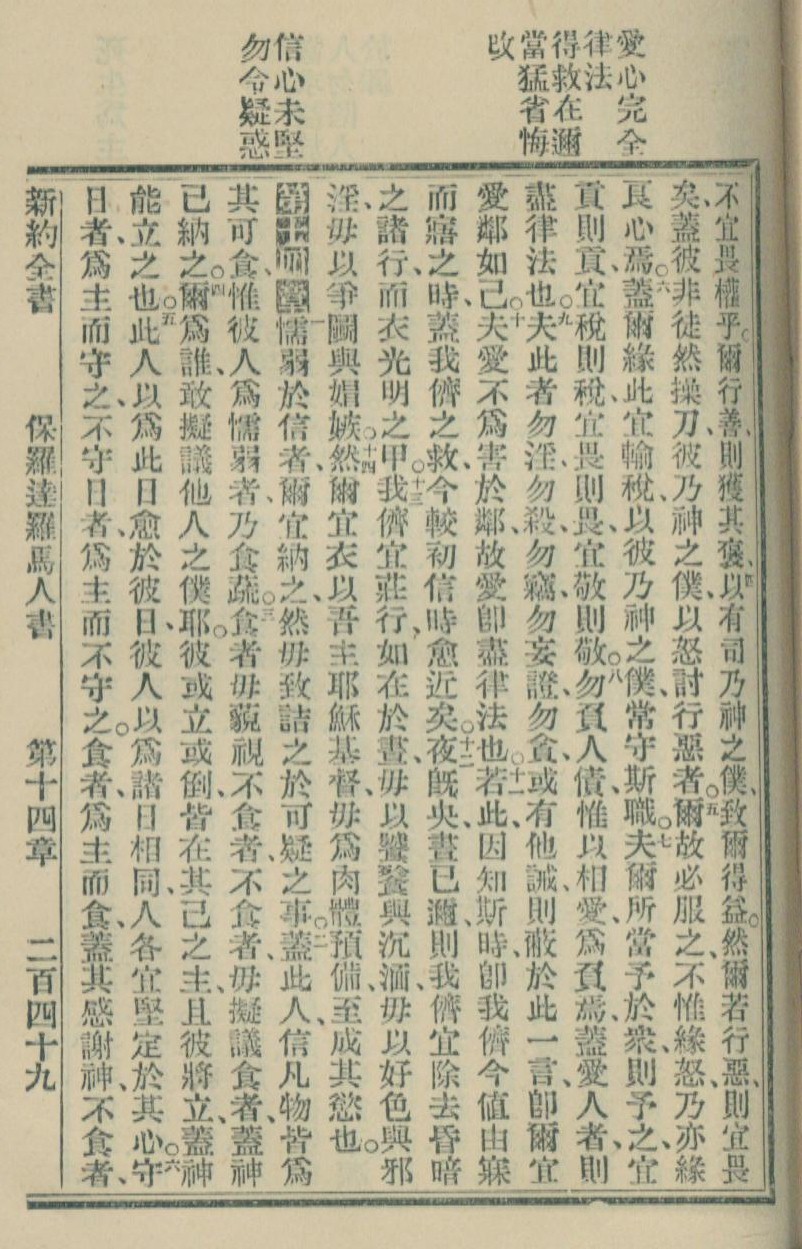 愛心完全
律法
得救在邇
當猛省悔
改
信心未堅
勿令疑惑
不宜畏權乎。爾行善、則獲其褒、四以有司乃神之僕、致爾得益。然爾若行惡、則宜畏
矣、蓋彼非徒然操刀、彼乃神之僕、以怒討行惡者。五爾故必服之、不惟緣怒、乃亦緣
良心焉。六蓋爾緣此宜輸稅、以彼乃神之僕、常守斯職。七夫爾所當予於衆、則予之、宜
貢則貢、宜稅則稅、宜畏則畏、宜敬則敬。八勿負人債、惟以相愛爲負焉、蓋愛人者、則
盡律法也。九夫此者勿淫、勿殺、勿竊、勿妄證、勿貪、或有他誡、則蔽於此一言、卽爾宜
愛鄰如己。十夫愛不爲害於鄰、故愛卽盡律法也。十一若此、因知斯時、卽我儕今値由寐
而寤之時、蓋我儕之救、今較初信時愈近矣。十二夜旣央、晝已邇、則我儕宜除去昏暗
之諸行、而衣光明之甲。十三我儕宜莊行、如在於晝、毋以饕餮與沉湎、毋以好色與邪
淫、毋以爭鬭與媢嫉。十四然爾宜衣以吾主耶穌基督、毋爲肉體預備、至成其慾也。
第十四章一懦弱於信者、爾宜納之、然毋致詰之於可疑之事。二蓋此人、信凡物皆爲
其可食、惟彼人爲懦弱者、乃食蔬。三食者毋藐視不食者、不食者、毋擬議食者、蓋神
已納之。四爾爲誰、敢擬議他人之僕耶。彼或立或倒、皆在其己之主、且彼將立、蓋神
能立之也。五此人以爲此日愈於彼日、彼人以爲諸日相同、人各宜堅定於其心。六守
日者、爲主而守之、不守日者、爲主而不守之。食者、爲主而食、蓋其感謝神、不食者、
新約全書 保羅達羅馬人書 第十四章 二百四十九